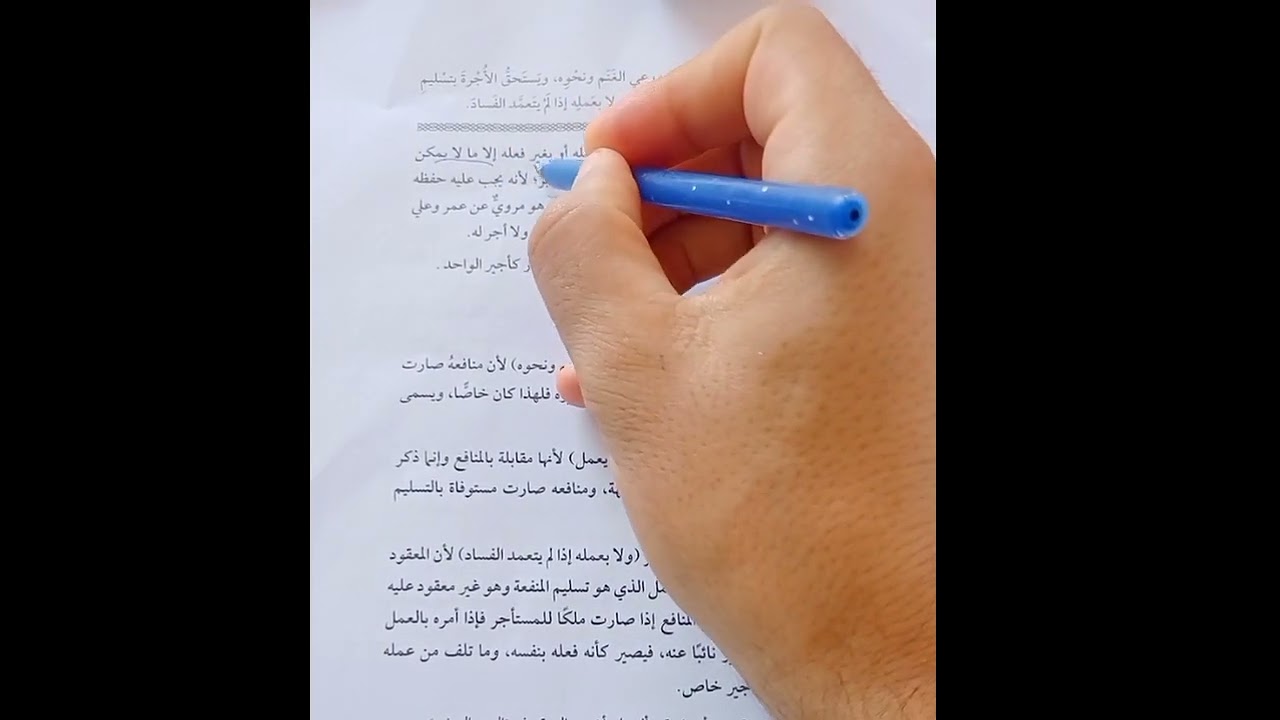 الغَنَم ونَحْوِه، ويَستَحقُّ الأُجْرةَ بتَسْليمِ
لا بعَملِه إذا لَمْ يتَعمَّد الفَسادَ.
أو بغير فعله إلا ما لا يمكن
لأنه يجب عليه حفظه
هو مرويٌّ عن عمر وعلي
ولا أجر له.
كأجير الواحد .
ونحوه) لأن منافعهُ صارت
فلهذا كان خاصًّا، ويسمى
يعمل) لأنها مقابلة بالمنافع وإنما ذكر
ومنافعه صارت مستوفاة بالتسليم
(ولا بعمله إذا لم يتعمد الفساد) لأن المعقود
الذي هو تسليم المنفعة وهو غير معقود عليه
المنافع إذا صارت ملكًا للمستأجر فإذا أمره بالعمل
نائبًا عنه، فيصير كأنه فعله بنفسه، وما تلف من عمله
خاص.